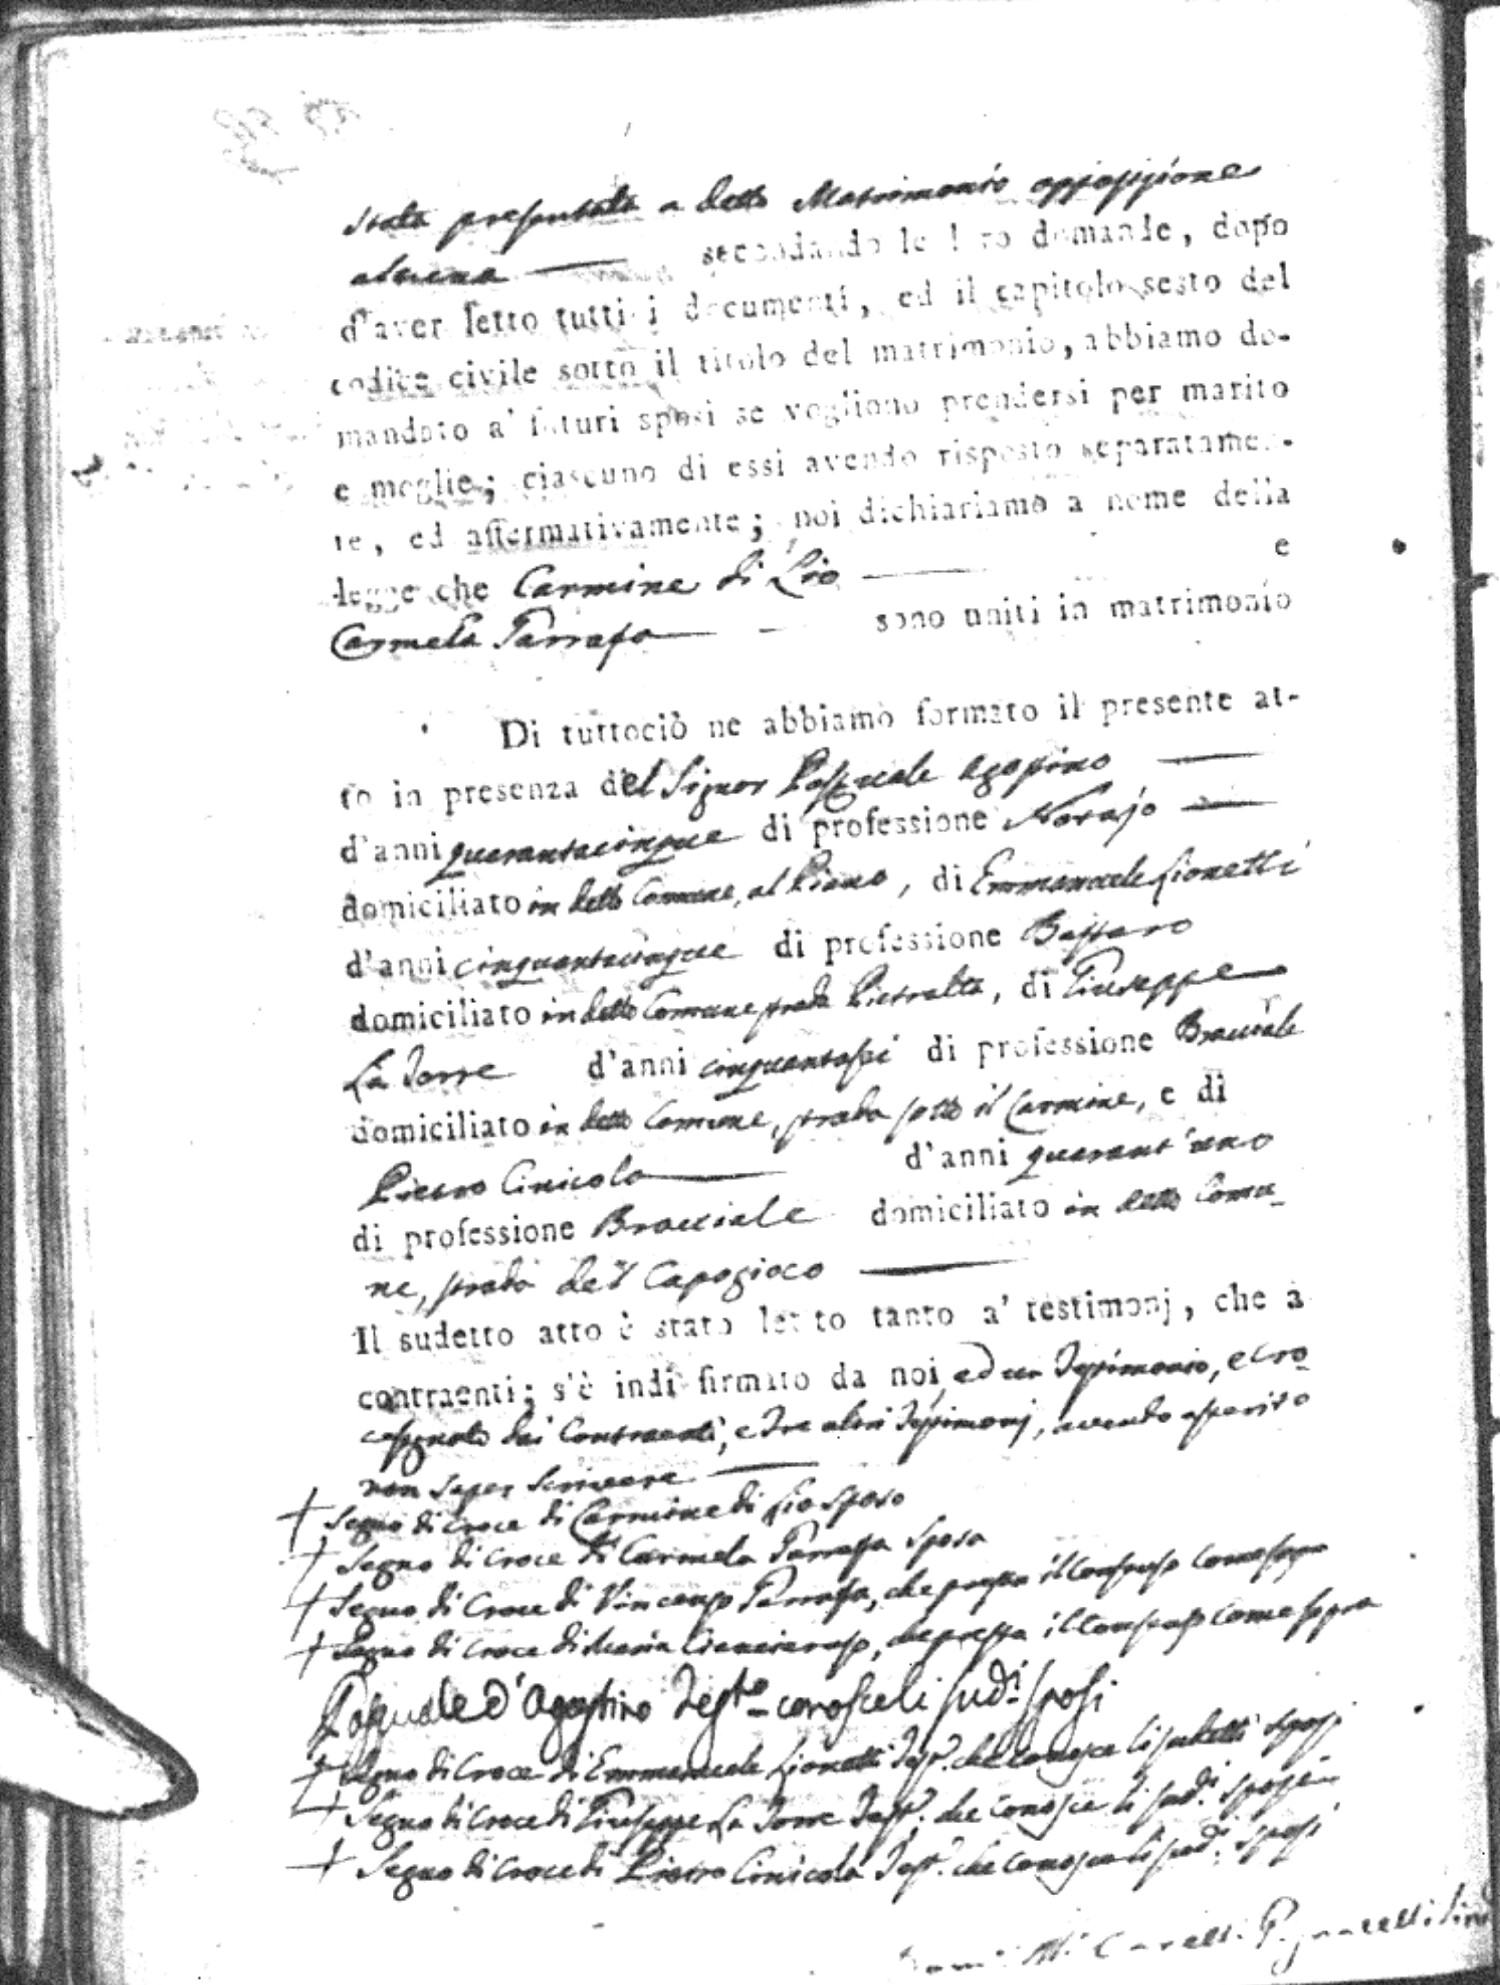 stata presentata a detto Matrimonio opposizione
alcuna secondando le loro domande, dopo
d'aver letto tutti i documenti, ed il capitolo sesto del
codice civile sotto il titolo del matrimonio, abbiamo do-
mandato a' futuri sposi se vogliono prendersi per marito
e moglie; ciascuno di essi avendo risposto separatamen-
te, ed affermativamente; noi dichiariamo a nome della
legge che Carmine di Lio e
Carmela Tarrasa sono uniti in matrimonio
Di tuttociò ne abbiamo formato il presente at-
to in presenza del Signor Pasquale Agostino
d'anni quarantacinque di professione Notajo
domiciliato in detto Comune, al Piano, di Emmanuele Lionetti
d'anni cinquantacinque di professione Bastaro
domiciliato in detto Comune strada Pietralta, di Giuseppe
La Torre d'anni cinquantasei di professione Bracciale
domiciliato in detto Comune, strada sotto il Carmine, e di
Pietro Cinicola d'anni quarant'uno
di professione Bracciale domiciliato in detto Comu-
ne, strada del Capogioco
Il sudetto atto è stato letto tanto a' testimonj, che a
contraenti; s'è indi firmato da noi, ed un Testimonio, e cro-
cesegnato dai Contraenti, e tre altri Testimonj, avendo asserito
non saper scrivere
+ Segno di Croce di Carmine di Lio sposo
+ Segno di Croce di Carmela Tarrasa sposa
+ Segno di Croce di Vincenzo Tarrasa, che presta il Consenso come sopra
+ Segno di Croce di Maria, che presta il Consenso come sopra
Pasquale d'Agostino Testo conosce li sudi sposi
+ Segno di Croce di Emmanuele Lionetti Test. che conosce li sudetti sposi
+ Segno di Croce di Giuseppe La Torre Test. che conosce li sudi sposi
+ Segno di Croce di Pietro Cinicola Test. che conosce li sudi sposi